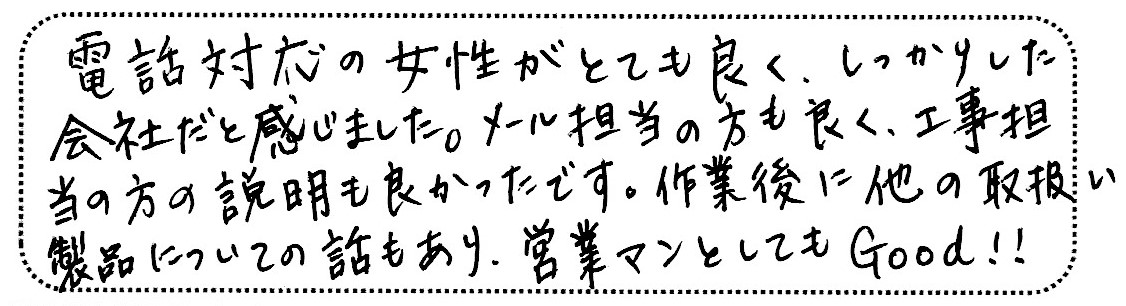 電話対応の女性がとても良く、しっかりした
会社だと感じました。メール担当の方も良く、工事担
当の方の説明も良かったです。作業後に他の取扱い
製品についての話もあり、営業マンとしてもGood!!